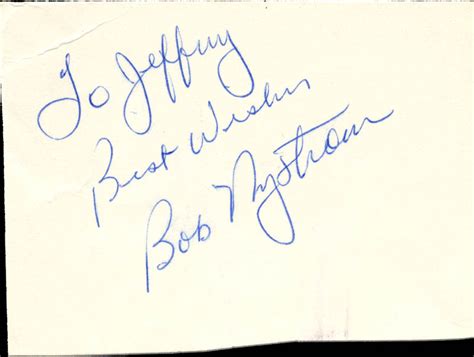 To Jeffrey
Best Wishes
Bob Nystrom